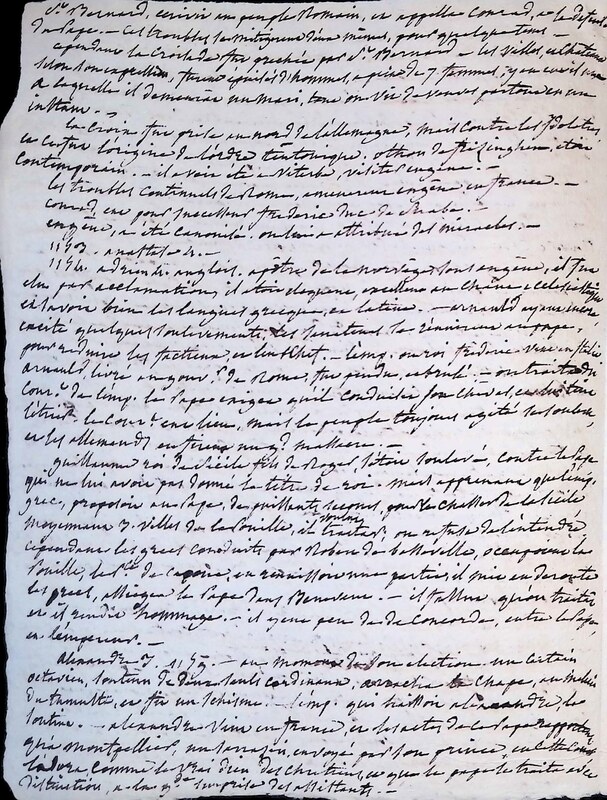 St. Bernard, écrivit au peuple Romain, en appella Conrad, à la défense
du Pape. - Ces troubles se mitigèrent d'eux mêmes, pour quelque tems -
cependant la croisade fut prêchée par St. Bernard - les villes, et châteaux
selon son expression, furent épuisés d'hommes, à peine de 7 femmes, y en avoit-il une
à laquelle il demeurât un mari, tant on vit de veuves partout en un
instant. -
la croix fut prise au nord de l'allemagne, mais contre les idolâtres
ce fut l'origine de l'ordre teutonique. othon de frisinghen, étoit
contemporain. - il avoit été à Viterbe, visiter eugène. -
les troubles continuels de Rome, amenèrent eugène en france. -
Conrad, eut pour successeur frédéric duc de Souabe. -
eugène, a été canonisé, on lui a attribué des miracles. -
1153. anastase 4. -
1154. adrien 4. anglois. apôtre de la norvège sous eugène, il fut
élu par acclamation, il étoit éloquent, excellent au chant ecclésiastique
et savoit bien les langues grecque, et latine. - arnauld ayant encore
excité quelques soulèvements, les sénateurs le
pour réduire les factieux - l'emp. ou roi frédéric vint en italie
arnauld, livré au gouv. de Rome, fut pendu, et brulé. - on traita du
cour. de l'emp. le Pape exigea qu'il conduisit son cheval, et lui tint
l'étrier. le cour. eut lieu, mais le peuple toujours agité se souleva,
et les allemands en firent un gd. massacre. -
guillaume roi de Sicile fils de Roger, s'étoit soulevé, contre le Pape
qui ne lui avoit pas donné le titre de roi. mais apprenant que l'emp.
grec, proposoit au Pape, de puissants secours, pour le chasser de la Sicile
moyennant 3. villes de la Pouille, il voulut traiter, on refusa de l'entendre
cependant les grecs conduits par Robert de basseville, occupoient la
Pouille, le Pce. de capoue, en réunissoit une partie, il mit en déroute
les grecs, assiégea le Pape dans Benevent. - il fallut, qu'on traitât
et il rendit hommage. - il y eut peu de de concorde, entre le Pape,
et l'empereur. -
Alexandre 3. 1159. - au moment de son élection un certain
octavien, soutenu de deux seuls cardinaux, arracha la chape, au milieu
du tumulte, et fit un schisme. - l'emp. qui haïssoit alexandre, le
soutint. - alexandre vint en france, et les actes de ce Pape rapportent
qu'à montpellier, un sarrazin, envoyé par son prince,
l'adora, comme le vrai dieu des chrétiens, et que le pape le traita avec
distinction, à la gde. surprise des assistants. -